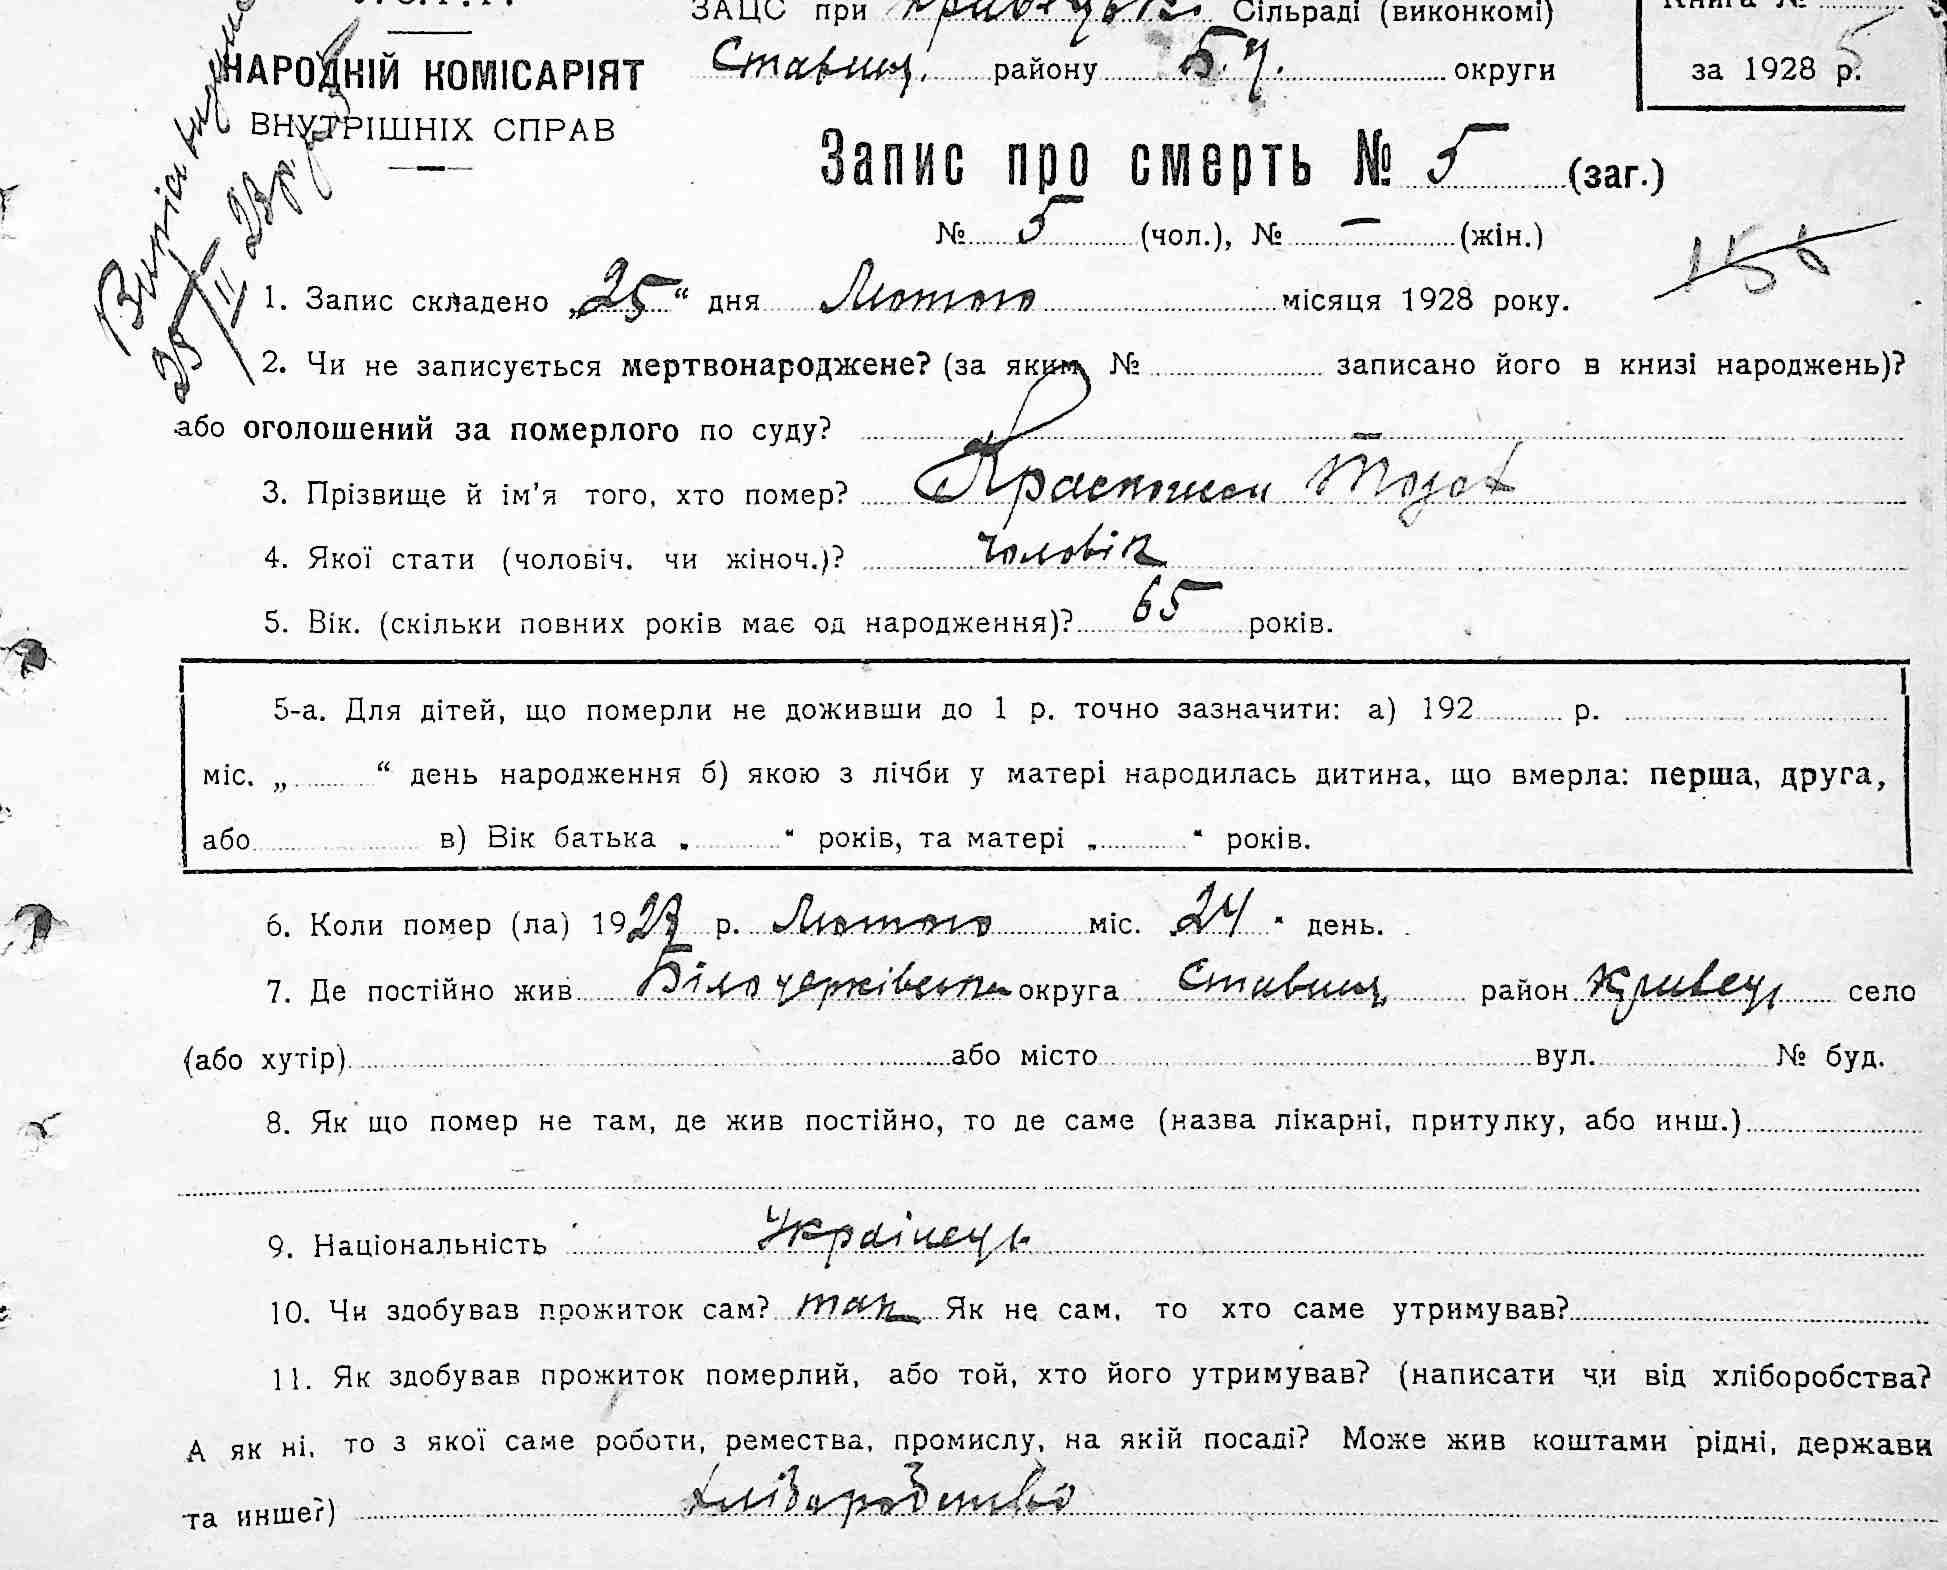 ЗАЦС при Сільраді (виконкомі)
НАРОДНІЙ КОМІСАРІЯТ
ВНУТРІШНІХ СПРАВ
Ставищ. району Б.Ц. округи
за 1928 р.
Запис про смерть № 5 (заг.)
№ 5 (чол.), № — (жін.)
25/II 28 р.
156
1. Запис складено „25“ дня Лютого місяця 1928 року.
2. Чи не записується мертвонароджене? (за яким № записано його в книзі народжень)?
або оголошений за померлого по суду? —
3. Прізвище й ім'я того, хто помер?
4. Якої стати (чоловіч. чи жіноч.)? чоловік
5. Вік. (скільки повних років має од народження)? 65 років.
5-а. Для дітей, що померли не доживши до 1 р. точно зазначити: а) 192 р.
міс. „ “ день народження б) якою з лічби у матері народилась дитина, що вмерла: перша, друга,
або в) Вік батька „ “ років, та матері „ “ років.
6. Коли помер (ла) 1928 р. Лютого міс. 24 “ день.
7. Де постійно жив Білоцерківська округа Ставищ. район Кривець село
(або хутір) або місто вул. № буд.
8. Як що помер не там, де жив постійно, то де саме (назва лікарні, притулку, або инш.)
9. Національність Українець
10. Чи здобував прожиток сам? так Як не сам, то хто саме утримував?
11. Як здобував прожиток померлий, або той, хто його утримував? (написати чи від хліборобства?
А як ні, то з якої саме роботи, ремества, промислу, на якій посаді? Може жив коштами рідні, держави
та инше?) хліборобство